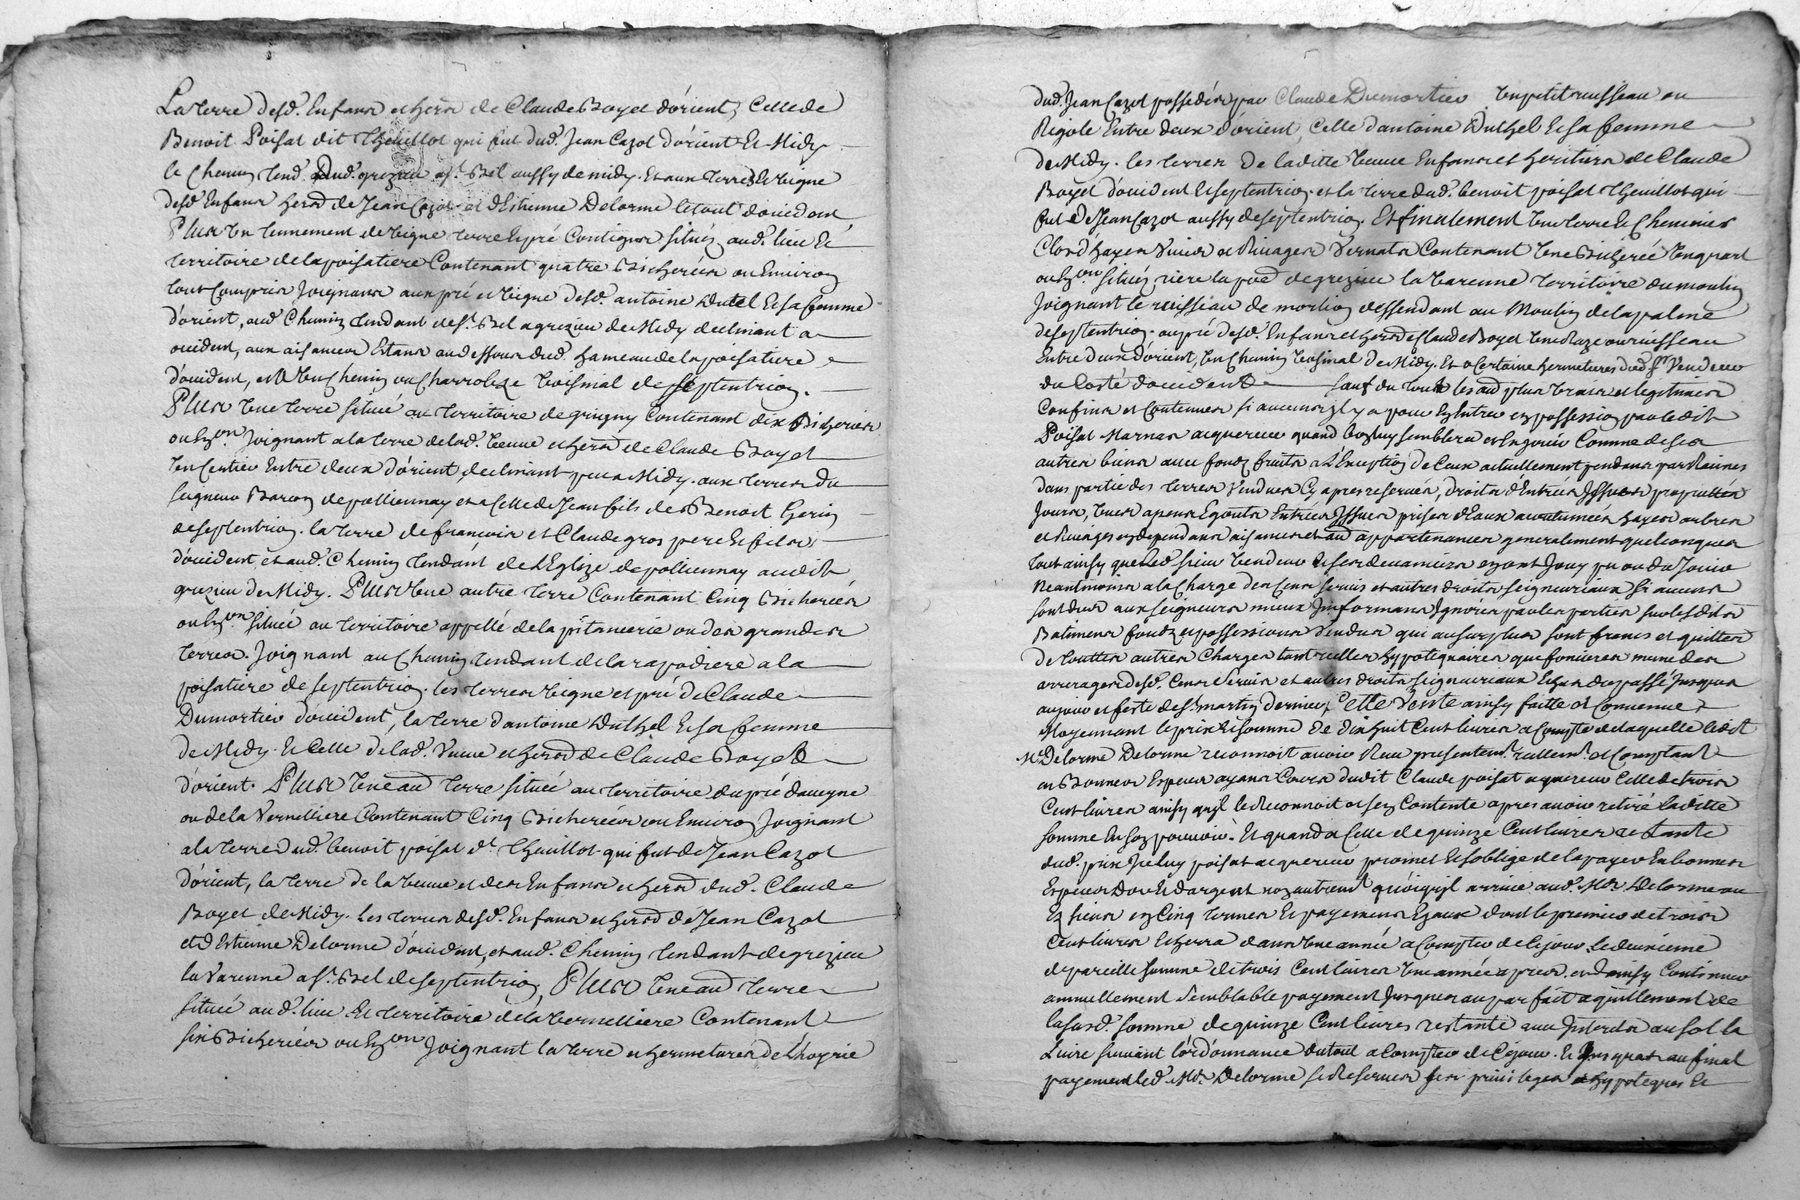 La terre desd. Enfans et hers de Claude Bayet d'orient, Celle de
Benoit Poisat dit Theuillot qui fut dud. Jean Cazot d'orient Et Midy
le Chemin tend. Dud. grezieu a St. Bel aussy de midy. Et aux terres Et vigne
desd. Enfans hers de Jean Cazot et d'Estienne Delorme le tout d'occident
Plus Un tennement de vigne terre Et pré Contigus situés aud. lieu Et
territoire de la poisatiere Contenant quatre Bicherées ou Environ
tout Compris Joignans aux pré et vigne desd. antoine Dutel Et sa femme
d'orient, aud. Chemin tendant de St. Bel a grezieu de Midy declinant a
occident, aux aisances Estans au dessous dud. hameau de la poisatiere
d'occident, et Un Chemin ou Charroliere voisinal de septentrion.
Plus Une terre située au territoire de grivigny Contenant dix Bicherées
ou Env.on Joignant a la terre de lad. veuve et hers de Claude Bayet
Un sentier Entre deux d'orient declinant peu a Midy. aux terres du
seigneur Baron de pollionnay et a Celle de Jean fils de Benoit Gerin
de septentrion. la terre de francois et Claude gros pere Et fils
d'occident, et aud. Chemin tendant de l'Eglize de pollionnay audit
grezieu de Midy. Plus Une autre terre Contenant Cinq Bicherées
ou Env.on située au territoire appellé de la pitancerie ou des grandes
terres. Joignant au Chemin tendant de la rapodiere a la
poisatiere de septentrion. les terres vigne et pré de Claude
Dumortier d'occident, la terre d'antoine Duthel Et sa femme
de Midy. Et Celle de lad. Veuve et hers de Claude Bayet
d'orient. Plus Une au. terre située au territoire du pré dauvergne
ou de la Vernelliere Contenant Cinq Bicherées ou Environ Joignant
a la terre dud. benoit poisat dt. Theuillot qui fut de Jean Cazot
d'orient, la terre de la veuve et des Enfans et hers dud. Claude
Bayet de Midy. les terres desd. Enfans et hers de Jean Cazot
et d'Estienne Delorme d'occident, et aud. Chemin tendant de grezieu
la Varenne a St. Bel de septentrion, Plus Une au. terre
située aud. lieu Et territoire de la vernelliere Contenant
six Bicherées ou Env.on Joignant la terre et hermetures de l'hoyrie
dud. Jean Cazot possedés par Claude Dumortier Un petit ruisseau ou
Rigole Entre deux d'orient, Celle d'antoine Duthel Et sa femme
de Midy. les terres de laditte veuve Enfans et heritiers de Claude
Bayet d'occident Et septentrion. et la terre dud. benoit poisat Theuillot qui
fut de Jean Cazot aussy de septentrion. Et finalement Une terre Et Cheneviere
Clos d'hayes Vives et Rivages Vernats Contenant Une Bicherée Un quart
ou Env.on situés riere la p.sse de grezieu la varenne territoire du moulin
Joignant le ruisseau de morlion dessendant au Moulin de la palme
de septentrion. au pré desd. Enfans et hers de Claude Bayet Une Raze ou ruisseau
Entre deux d'orient, Un Chemin voisinal de Midy. Et a Certaine hermetures dud. Sr. Vendeur
du Costé d'occident sauf du tout les au. plus vrais et legitimes
Confins et Contenues si aucuns il y a pour Entrer en possession par ledit
Poisat Marnas acquereur quand bon luy semblera et En jouir Comme de ses
autres biens avec fonds fruits a l'Exception de Ceux actuellement pendans par Racines
dans partie des terres Vendues Cy apres reservés, droits d'Entrées Issues proprietés
Jours, vues apans Egouts Entrées Issues prises d'Eaux acoutumées hayes arbres
et Rivages en dependans aisances et au. appartenances generalement quelconques
tout ainsy que led. sieur Vendeur et ses devanciers en ont Jouy pu ou du Jouir
Neantmoins a la Charge des Cens servis et autres droits seigneuriaux si aucuns
sont dus aux seigneurs mieux Informans Ignorés par les parties sur lesdits
Batimens fonds et possessions Vendus qui au surplus sont francs et quittes
de touttes autres Charges tant reelles hypotequaires que foncieres meme des
arrerages desd. Cens servis et autres droits seigneuriaux Echus du passé Jusques
au jour et feste de St. martin dernier, Cette Vente ainsy faitte et Convenue
Moyennant le prix Et somme de dix huit Cent livres a Compte de laquelle ledit
Mr. Delorme Delorme reconnoit avoir Reçu presentemt. reellemt. et Comptant
en Bonnes Especes ayans Cours dudit Claude poisat acquereur Celle de trois
Cent livres ainsy qu'il le Reconnoit et s'en Contente apres avoir retiré laditte
somme En son pouvoir. Et quand a Celle de quinze Cent livres restante
dud. prix Iceluy poisat acquereur promet Et s'oblige de la payer En bonnes
Especes d'or Et d'argent non autremt. quoiqu'il arrive aud. Mr. Delorme ou
Es siens en Cinq termes Et payemens Egaux dont le premier de trois
Cent livres Echerra dans Une année a Compter de Ce jour, le deuxieme
de pareille somme de trois Cent livres Une année apres. et d'ainsy Continuer
annuellement semblable payement Jusques au parfait aquittement de
la susd. somme de quinze Cent livres restante avec Interests au sol la
Livre suivant l'ordonnance du tout a Compter de Ce jour. Et Jusques au final
payement led. Mr. Delorme se Reserve ses privileges et hypoteques Et